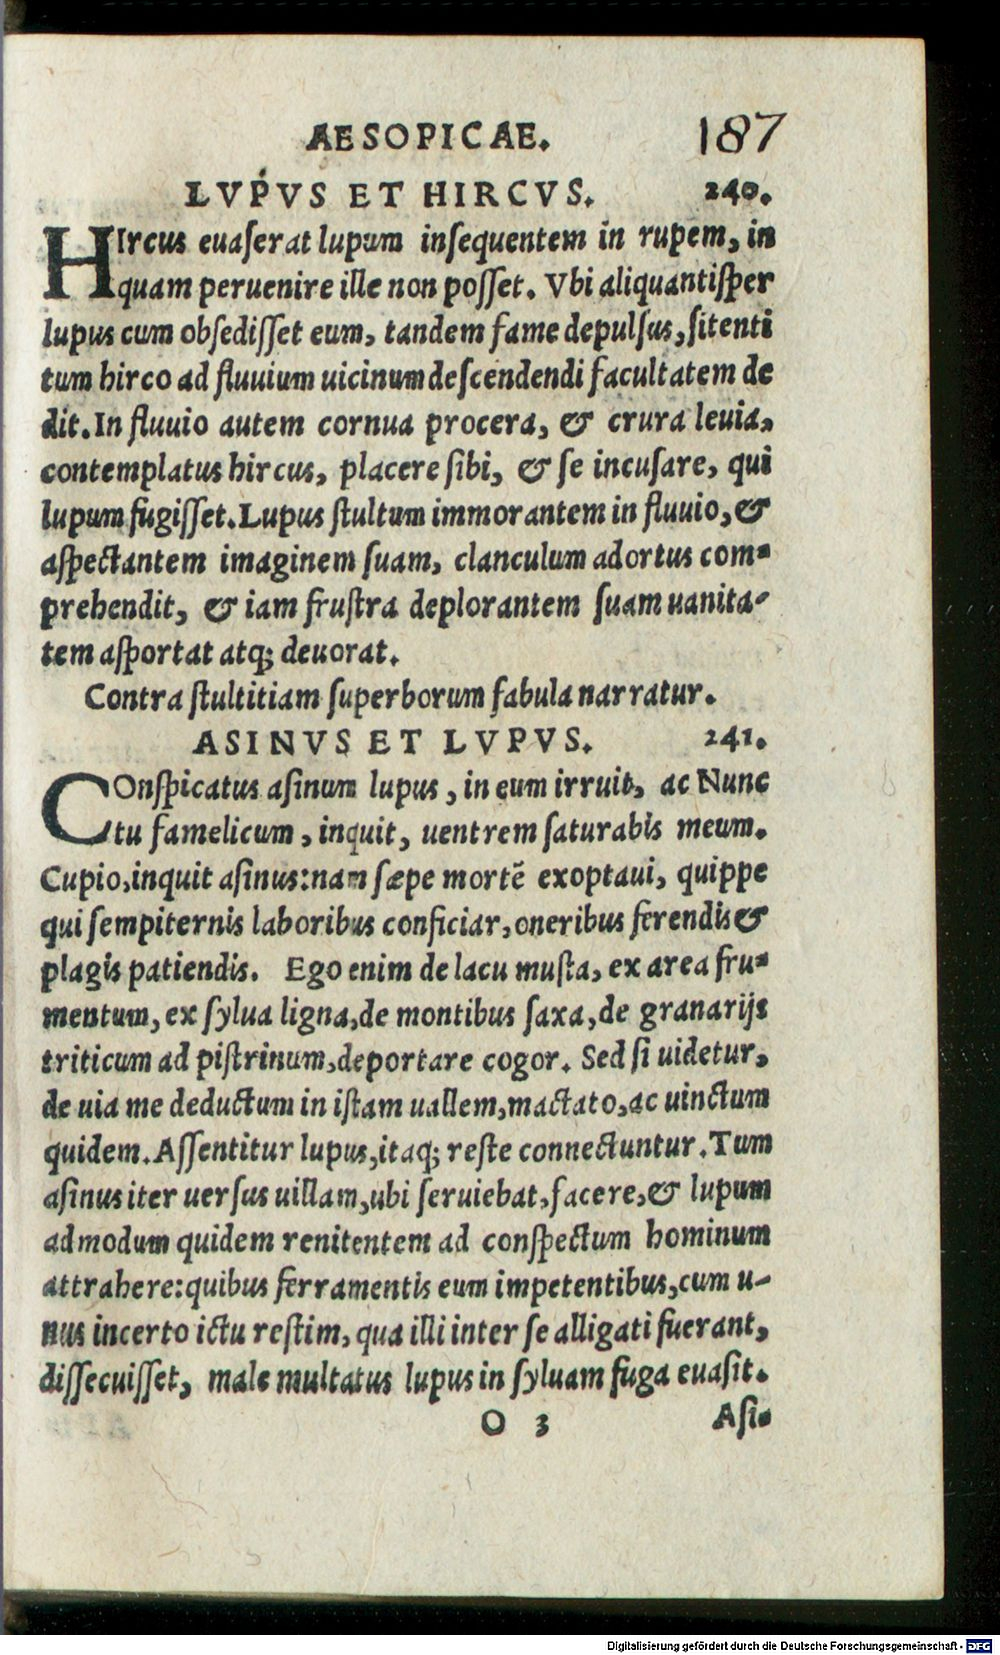 AESOPICAE. 187
LVPVS ET HIRCVS. 240.
HIrcus euaserat lupum insequentem in rupem, in
quam peruenire ille non posset. Vbi aliquantisper
lupus cum obsedisset eum, tandem fame depulsus, sitenti
tum hirco ad fluuium uicinum descendendi facultatem de
dit. In fluuio autem cornua procera, & crura leuia,
contemplatus hircus, placere sibi, & se incusare, qui
lupum fugisset. Lupus stultum immorantem in fluuio, &
aspectantem imaginem suam, clanculum adortus com-
prehendit, & iam frustra deplorantem suam uanita-
tem asportat atq; deuorat.
Contra stultitiam superborum fabula narratur.
ASINVS ET LVPVS. 241.
COnspicatus asinum lupus, in eum irruit, ac Nunc
tu famelicum, inquit, uentrem saturabis meum.
Cupio, inquit asinus: nam sæpe mortē exoptaui, quippe
qui sempiternis laboribus conficiar, oneribus ferendis &
plagis patiendis. Ego enim de lacu musta, ex area fru-
mentum, ex sylua ligna, de montibus saxa, de granarijs
triticum ad pistrinum, deportare cogor. Sed si uidetur,
de uia me deductum in istam uallem, mactato, ac uinctum
quidem. Assentitur lupus, itaq; reste connectuntur. Tum
asinus iter uersus uillam, ubi seruiebat, facere, & lupum
admodum quidem renitentem ad conspectum hominum
attrahere: quibus ferramentis eum impetentibus, cum u-
nus incerto ictu restim, qua illi inter se alligati fuerant,
dissecuisset, male multatus lupus in syluam fuga euasit.
O 3 Asi-
Digitalisierung gefördert durch die Deutsche Forschungsgemeinschaft - DFG